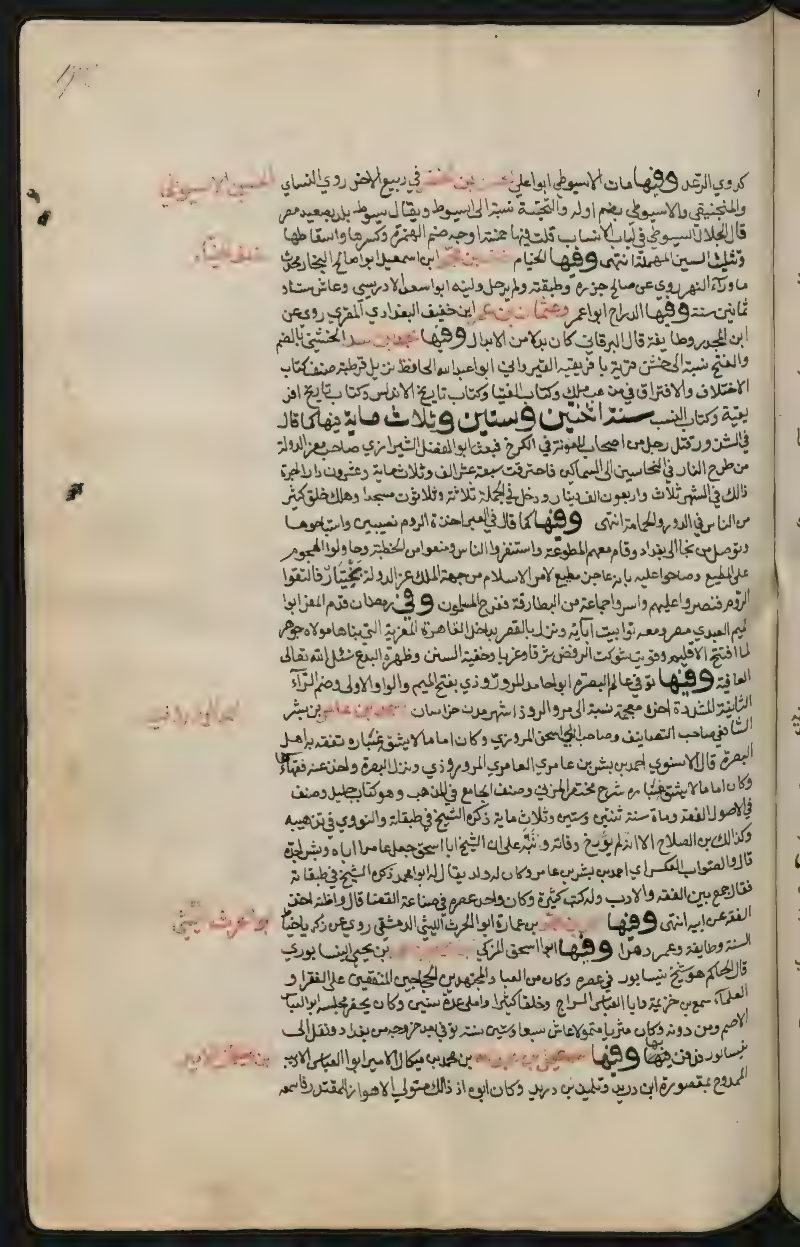 كدوي الرعد وفيها مات الاسيوطي ابو علي الحسن بن الخضر في ربيع الاخر روي النساي
والمنجنيقي والاسيوطي بضم اوله والتحتية نسبة الى اسيوط ويقال سيوط بلد بصعيد مصر
قال الجلال السيوطي في لباب الانساب قلت فيها خمسة اوجه ضم الهمزة وكسرها واسقاطها
وتثليث السين المهملة انتهى وفيها الخيام خلف بن محمد ابن اسمعيل ابو صالح البخاري محدث
ماوراء النهر روي عن صالح جزره وطبقته ولم يرحل ولينه ابو اسعد الادريسي وعاش ستا و
ثمانين سنة وفيها الدراج ابو اعمر وعثمان بن عمر ابن خفيف البغدادي المقري روي عن
ابن المجدر وطايفة قال البرقاني كان بدلا من الابدال وفيها محمد بن اسد الخشني بالضم
والفتح نسبة الى خشن قرية بافريقيه القيرواني ابو اعبد الله الحافظ نزيل قرطبة صنف كتاب
الاختلاف والافتراق في مذهب ملك وكتاب الفتيا وكتاب تاريخ الاندلس وكتاب تاريخ افر
يقية وكتاب النسب سنة اثنين وستين وثلاث ماية فيها كما قال
في الشذور قتل رجل من اصحاب المعونة في الكرخ فبعث ابو الفضل الشيرازي صاحب معز الدولة
من طرح النار في النحاسين الى السماكين فاحترقت سبعة عشر الف وثلاث ماية وعشرون دارا اجرة
ذالك في الشهر ثلاث واربعون الف دينار ودخل في الجملة ثلاثة وثلاثون مسجدا وهلك خلق كثير
من الناس في الدور والحمامة انتهى وفيها كما قال في العبر اخذة الروم نصيبين واستباحوها
وتوصل من نجا الى بغداد وقام معهم المطوعة واستنفروا الناس ومنعوا من الخطبة وحاولوا الهجوم
على المطيع وصاحوا عليه بانه عاجز مضيع لامر الاسلام من جهة الملك عز الدولة بختيار فالتقوا
الروم فنصروا عليهم واسروا جماعة من البطارقة ففرح المسلمون وفي رمضان قدم المعز ابوا
تميم العبيدي مصر ومعه توابيت آبايه ونزل بالقصر بداخل القاهرة المعزية التي بناها مولاه جوهر
لما افتتح الاقليم وقويت شوكت الرفض شرقا وغربا وخفية السنن وظهرة البدع نسئل الله تعالى
العافية وفيها توفي عالم البصره ابو احامد المروروذي بفتح الميم والواو الاولى وضم الرآء
الثانية المشددة اخره معجمة نسبة الى مرو الروذ اشهر مدن خراسان احمد بن عامر بن بشر
الشافعي صاحب التصانيف وصاحب ابي اسحق المروزي وكان اماما لا يشق غباره تفقه به اهل
البصرة قال الاسنوي احمد بن بشر بن عامري العامري المروروذي ونزل البصرة واخذ عنه فقهاؤها
وكان اماما لا يشق غباره شرح مختصر المزني وصنف الجامع في المذهب وهو كتاب جليل وصنف
في الاصول الفقه وماة سنة ثنتين وستين وثلاث ماية ذكره الشيخ في طبقاته والنووي في تهذيبه
وكذالك بن الصلاح الا انه لم يورخ وفاته ونبه على ان الشيخ ابا اسحق جعل عامرا اباه وبشر جده
قال والصواب العكس اي احمد بن بشر بن عامر وكان له ولد يقال له ابو محمد ذكره الشيخ في طبقاته
فقال جمع بين الفقه والادب وله كتب كثيرة وكان واحد عصره في صناعة القضا قال واظنه اخذ
الفقه عن ابيه انتهى وفيها بن عمارة ابو الحرث الليثي الدمشقي روي عن زكريا خياط
السنة وطايفة وعمر دهرا وفيها ابو اسحق المزكي بن يحيى النيسابوري
قال الحاكم هو شيخ نيسابور في عصره وكان من العباد المجتهدين الحجاجين المنفقين على الفقرا و
العلماء سمع بن خزيمة وابا العباس السراج وخلقا كثيرا واملى عدة سنين وكان يحضر مجلسه ابو العباس
الاصم ومن دونه وكان مثريا متمولا عاش سبعا وستين سنة توفي بعد خروجه من بغداد ونقل الى
نيسابور فدفن فيها بها وفيها بن محمد بن ميكال الامير ابوا العباس الاديب
الممدوح بمقصورة ابن دريد وتلميذ بن دريد وكان ابوه اذ ذالك متولي الاهواز للمقتدر فاسمعه